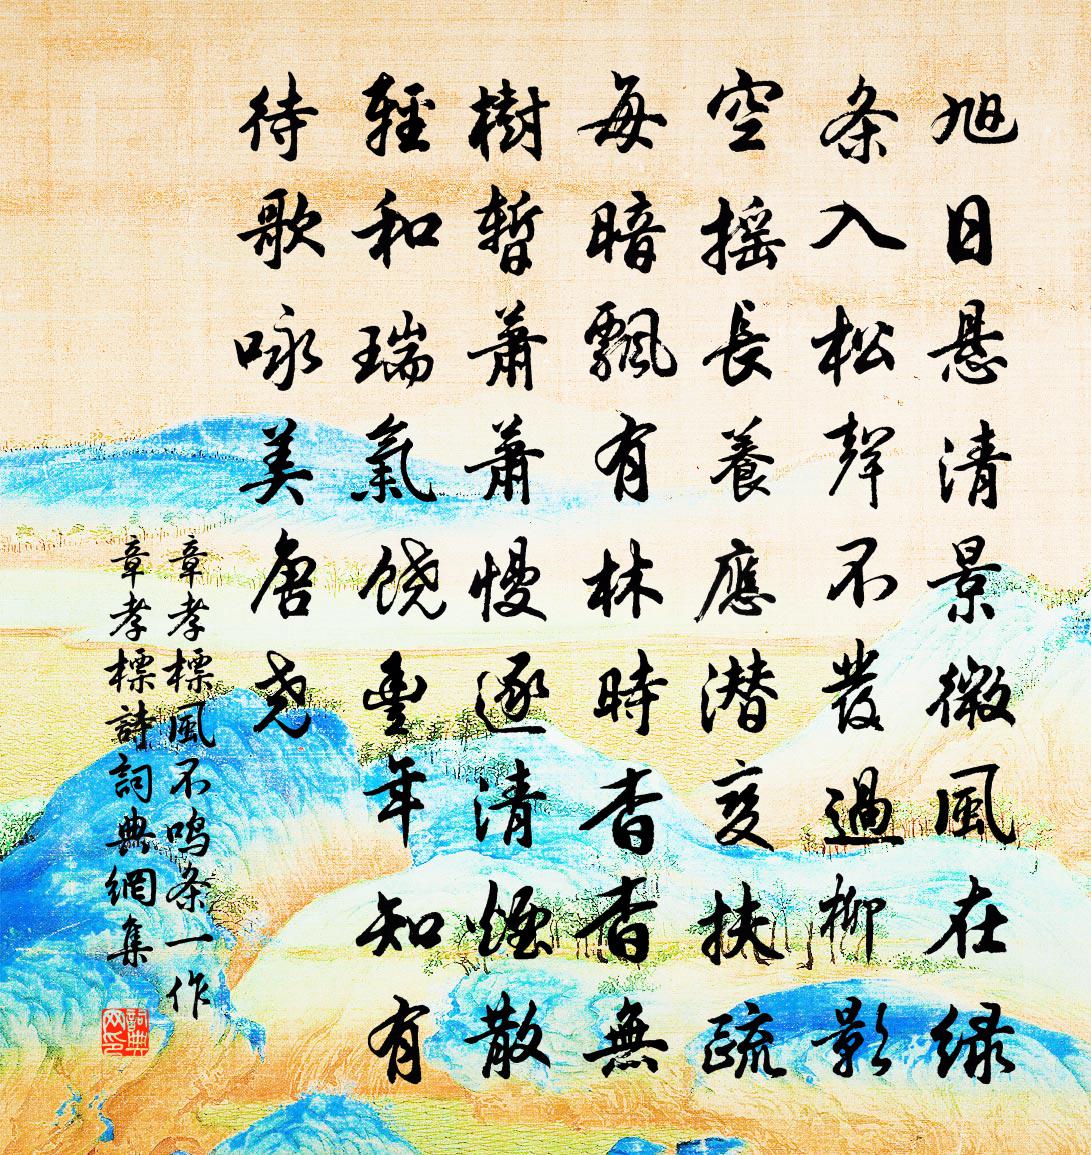 旭日悬清景微風在绿
条入松聲不發過柳影
空摇長養應潜变扶疏
每暗飄有林時杳杳無
樹暫蕭蕭慢逐清煙散
輕和瑞氣饶豊年知有
待歌咏美唐尧
章孝標風不鸣条一作
章孝標詩詞典網集
詞典网印